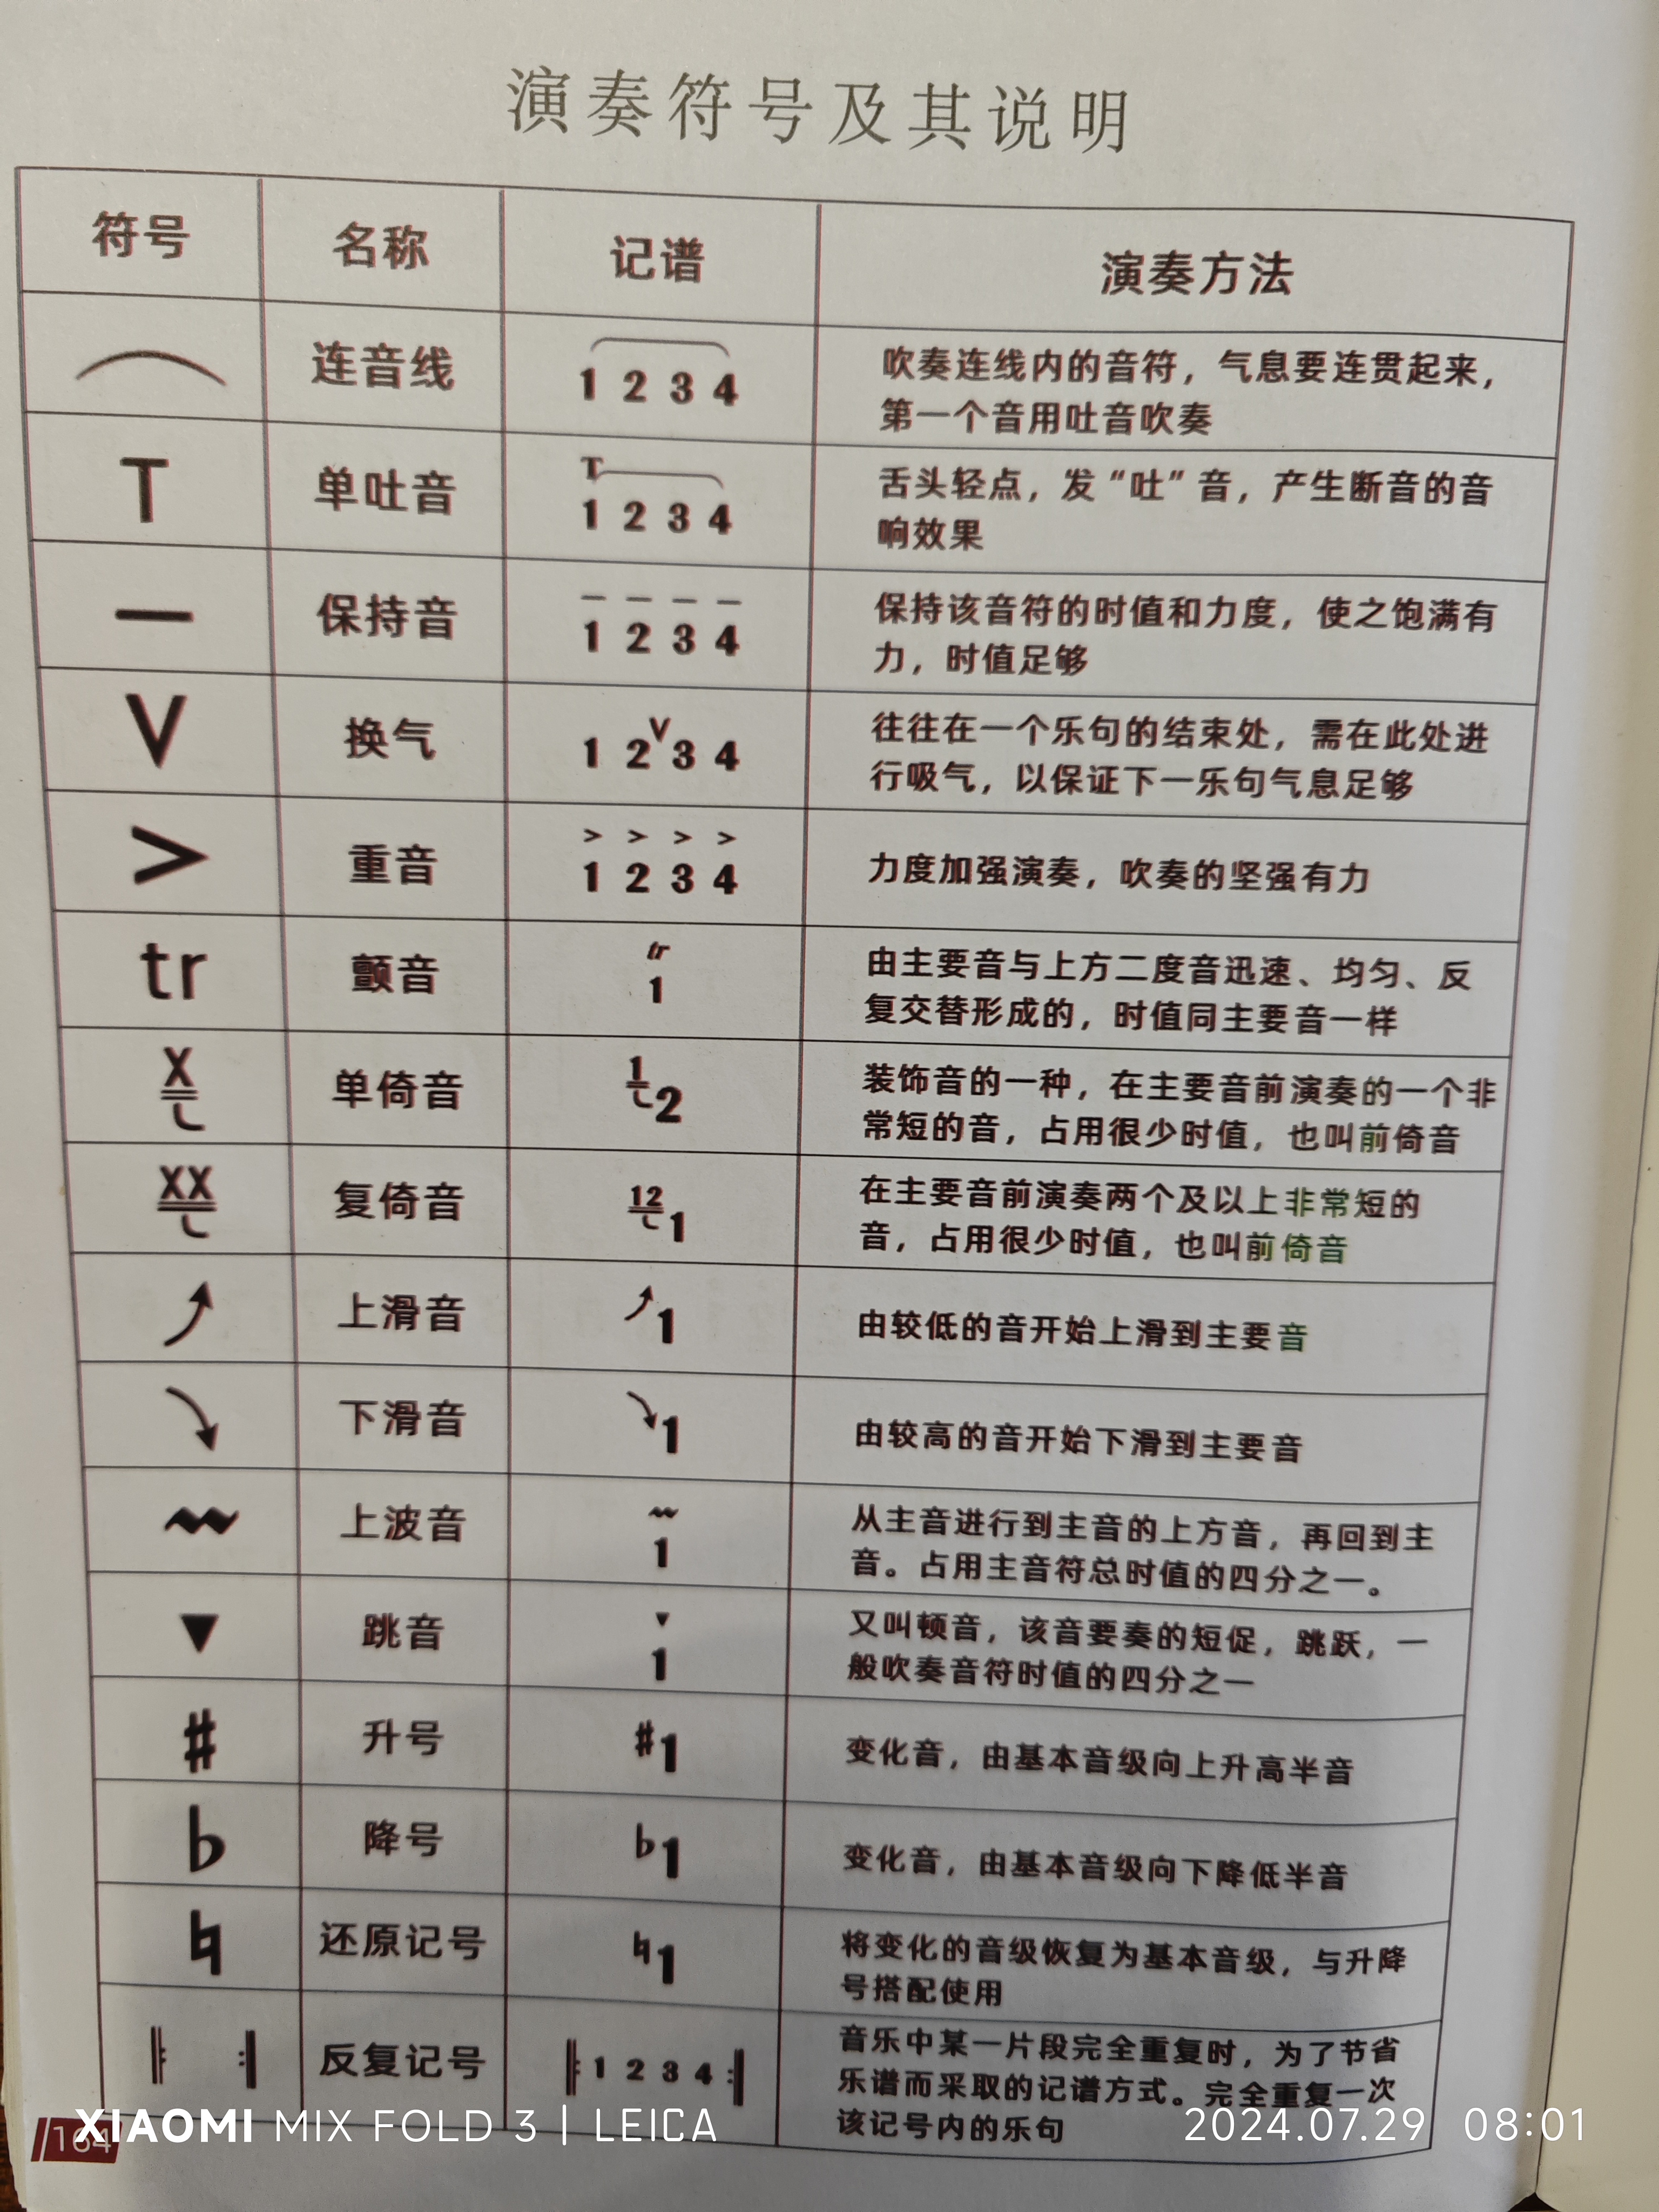 演奏符号及其说明
符号 名称 记谱 演奏方法
连音线 1 2 3 4 吹奏连线内的音符，气息要连贯起来，
第一个音用吐音吹奏
T 单吐音 T 1 2 3 4 舌头轻点，发“吐”音，产生断音的音
响效果
— 保持音 — — — — 1 2 3 4 保持该音符的时值和力度，使之饱满有
力，时值足够
V 换气 1 2 V 3 4 往往在一个乐句的结束处，需在此处进
行吸气，以保证下一乐句气息足够
> 重音 > > > > 1 2 3 4 力度加强演奏，吹奏的坚强有力
tr 颤音 tr 1 由主要音与上方二度音迅速、均匀、反
复交替形成的，时值同主要音一样
X 单倚音 1 2 装饰音的一种，在主要音前演奏的一个非
常短的音，占用很少时值，也叫前倚音
XX 复倚音 12 1 在主要音前演奏两个及以上非常短的
音，占用很少时值，也叫前倚音
上滑音 1 由较低的音开始上滑到主要音
下滑音 1 由较高的音开始下滑到主要音
上波音 1 从主音进行到主音的上方音，再回到主
音。占用主音符总时值的四分之一。
▼ 跳音 ▼ 1 又叫顿音，该音要奏的短促，跳跃，一
般吹奏音符时值的四分之一
♯ 升号 ♯1 变化音，由基本音级向上升高半音
♭ 降号 ♭1 变化音，由基本音级向下降低半音
♮ 还原记号 ♮1 将变化的音级恢复为基本音级，与升降
号搭配使用
‖: :‖ 反复记号 ‖: 1 2 3 4 :‖ 音乐中某一片段完全重复时，为了节省
乐谱而采取的记谱方式。完全重复一次
该记号内的乐句
164
XIAOMI MIX FOLD 3 | LEICA
2024.07.29 08:01